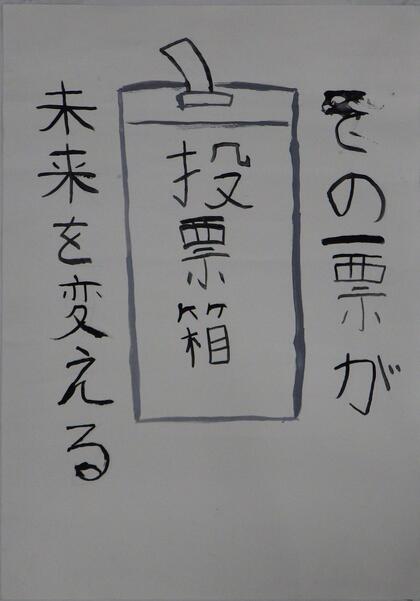 その一票が
投票箱
未来を変える